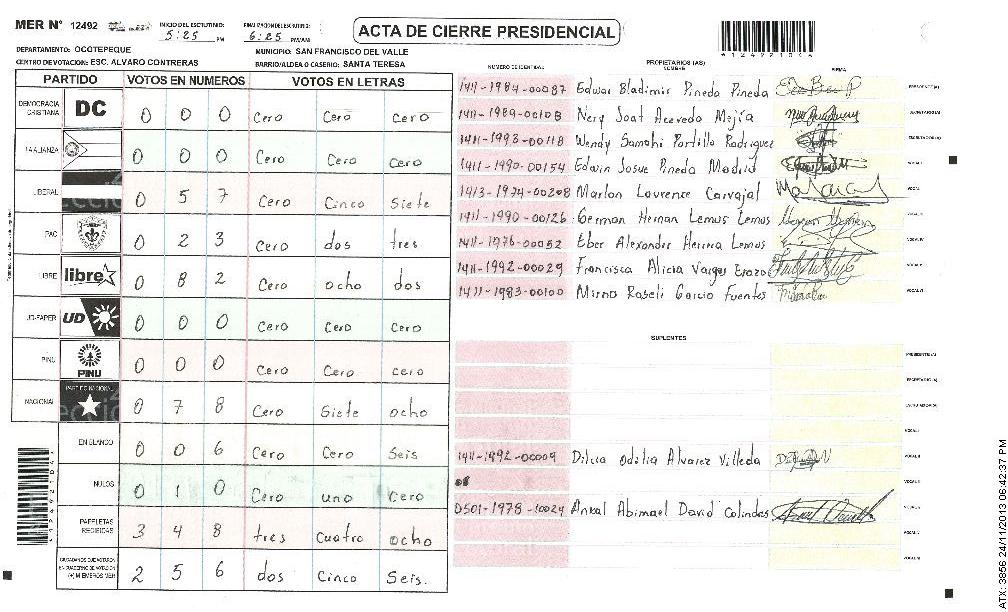 MER N° 12492 INICIO DEL ESCRUTINIO: 5:25 PM FINALIZACION DEL ESCRUTINIO: 6:25 PM/AM
ACTA DE CIERRE PRESIDENCIAL
DEPARTAMENTO: OCOTEPEQUE MUNICIPIO: SAN FRANCISCO DEL VALLE
CENTRO DE VOTACION: ESC. ALVARO CONTRERAS BARRIO/ALDEA O CASERIO: SANTA TERESA
PARTIDO VOTOS EN NUMEROS VOTOS EN LETRAS
DEMOCRACIA CRISTIANA DC 0 0 0 Cero Cero Cero
LA ALIANZA 0 0 0 Cero Cero Cero
LIBERAL 0 5 7 Cero Cinco Siete
PAC 0 2 3 Cero dos tres
LIBRE libre 0 8 2 Cero ocho dos
UD-FAPER UD 0 0 0 Cero Cero Cero
PINU PINU 0 0 0 Cero Cero cero
NACIONAL PARTIDO NACIONAL 0 7 8 Cero Siete ocho
EN BLANCO 0 0 6 Cero Cero Seis
NULOS 0 1 0 Cero uno Cero
PAPELETAS RECIBIDAS 3 4 8 tres Cuatro ocho
CIUDADANOS QUE VOTARON EN CUADERNO DE VOTACION (+) MIEMBROS MER 2 5 6 dos Cinco Seis.
NUMERO DE IDENTIDAD PROPIETARIOS (AS) NOMBRE FIRMA
1411-1984-00087 Edwar Bladimir Pineda Pineda PRESIDENTE (A)
1411-1989-00108 Nery Joat Acevedo Mejía SECRETARIO (A)
1411-1993-00118 Wendy Samahi Portillo Rodriguez ESCRUTADOR (A)
1411-1990-00154 Edwin Josue Pineda Madrid VOCAL I
1413-1974-00208 Marlon Lourence Carvajal VOCAL
1411-1990-00126 German Hernan Lemus Lemus
1411-1976-00052 Eber Alexander Herrera Lemus VOCAL IV
1411-1992-00029 Francisca Alicia Vargas Erazo VOCAL V
1411-1983-00100 Mirna Roseli Garcia Fuentes VOCAL VI
SUPLENTES
PRESIDENTE (A)
SECRETARIO (A)
ESCRUTADOR (A)
VOCAL I
1411-1992-00009 Dilcia Odilia Alvarez Villeda VOCAL II
0501-1978-10024 Anval Abimael David Colindas
ATX: 3856 24/11/2013 06:42:37 PM